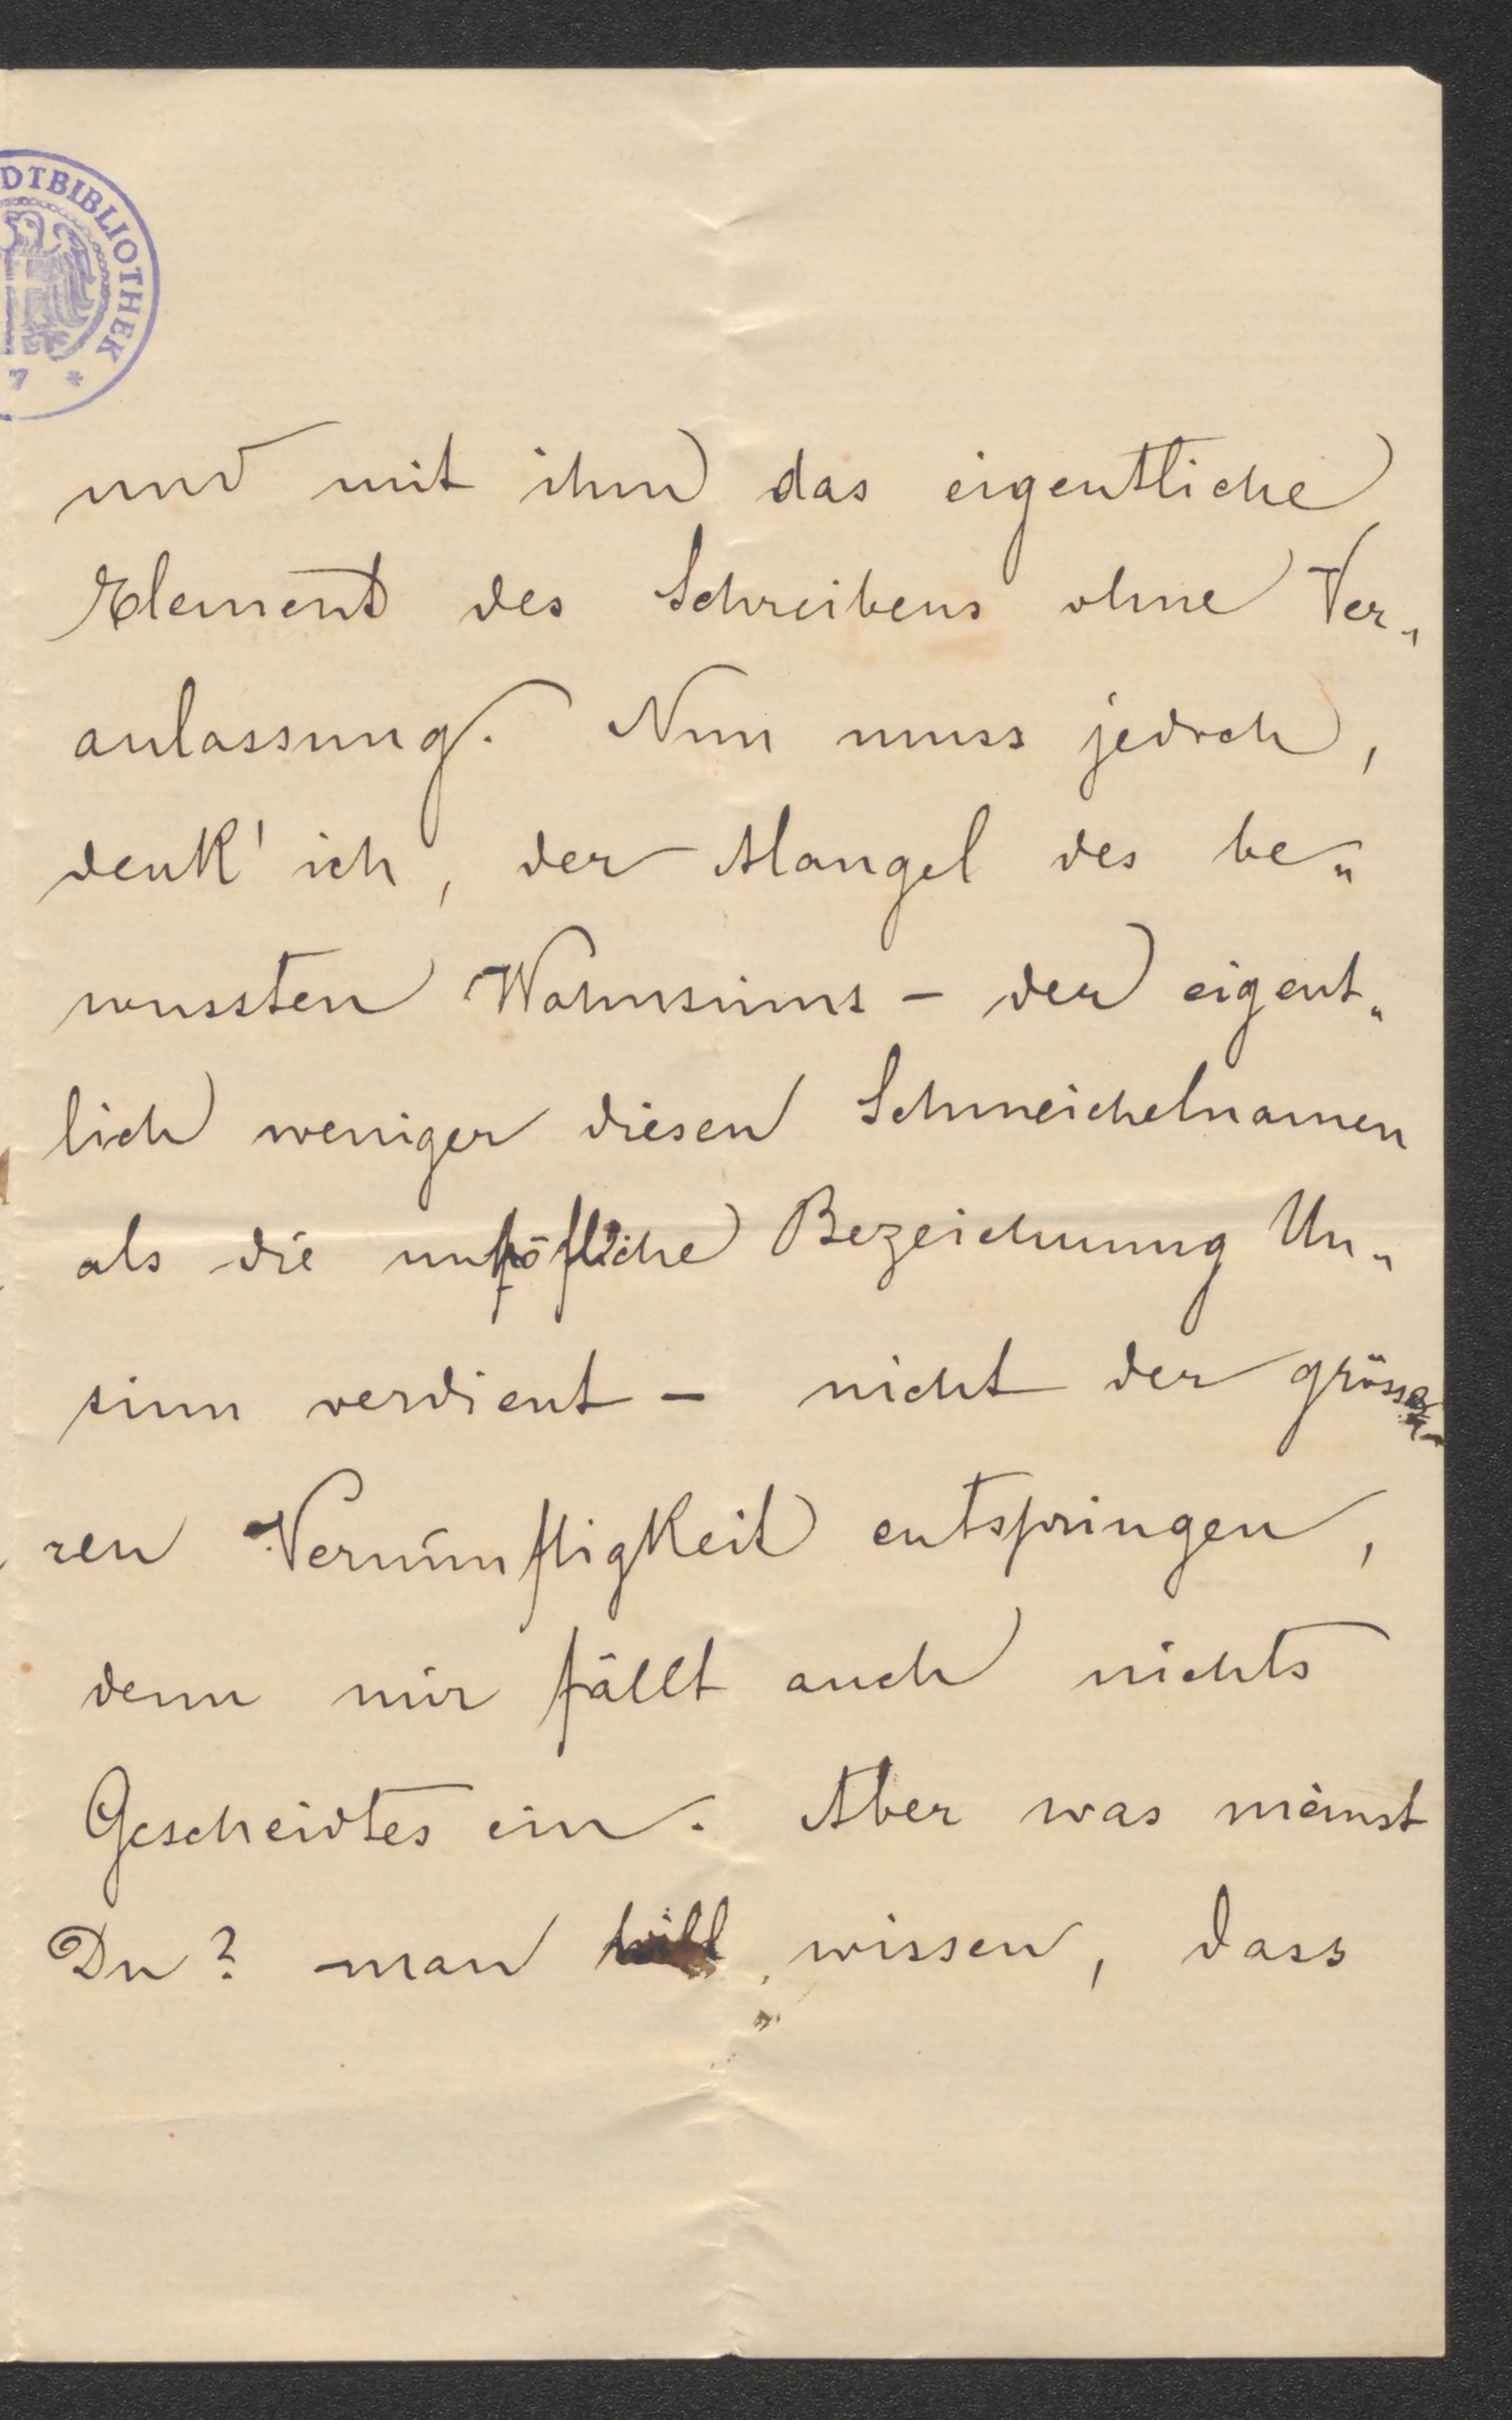 DTBIBLIOTHEK
7 *
und mit ihm das eigentliche
Element des Schreibens ohne Ver„
anlassung. Nun muss jedoch,
denk' ich, der Mangel des be„
wussten Wahnsinns – der eigent„
lich weniger diesen Schmeichelnamen
als die unhöfliche Bezeichnung Un„
sinn verdient – nicht der grösse-
ren Vernünftigkeit entspringen,
denn mir fällt auch nichts
Gescheidtes ein. Aber was meinst
Du? man will wissen, dass